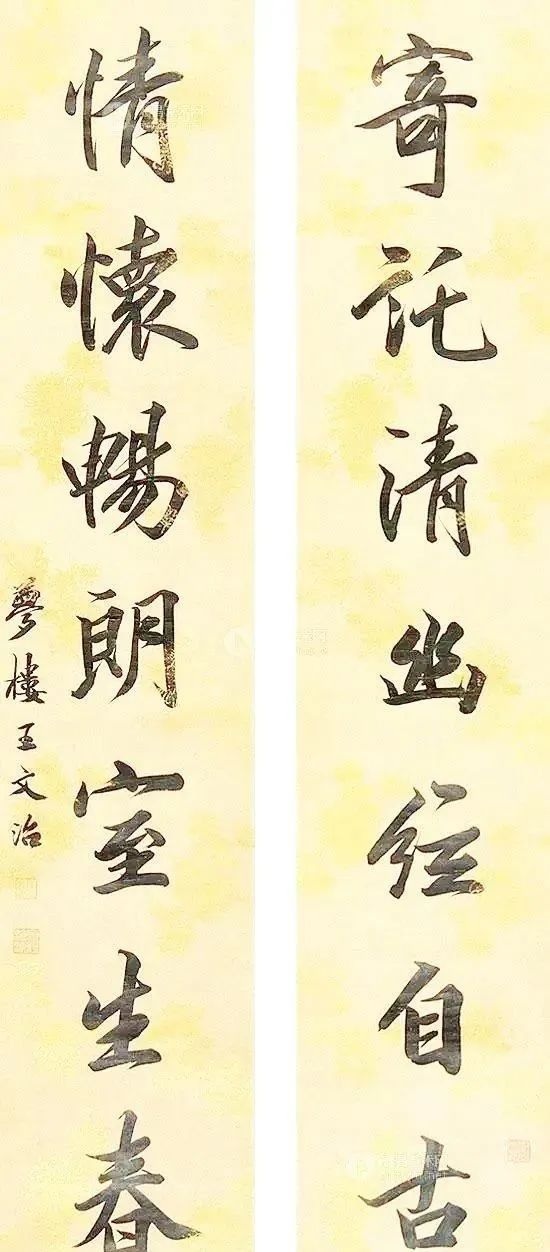 寄託清幽自古
情懷暢朗室生春
夢樓王文治